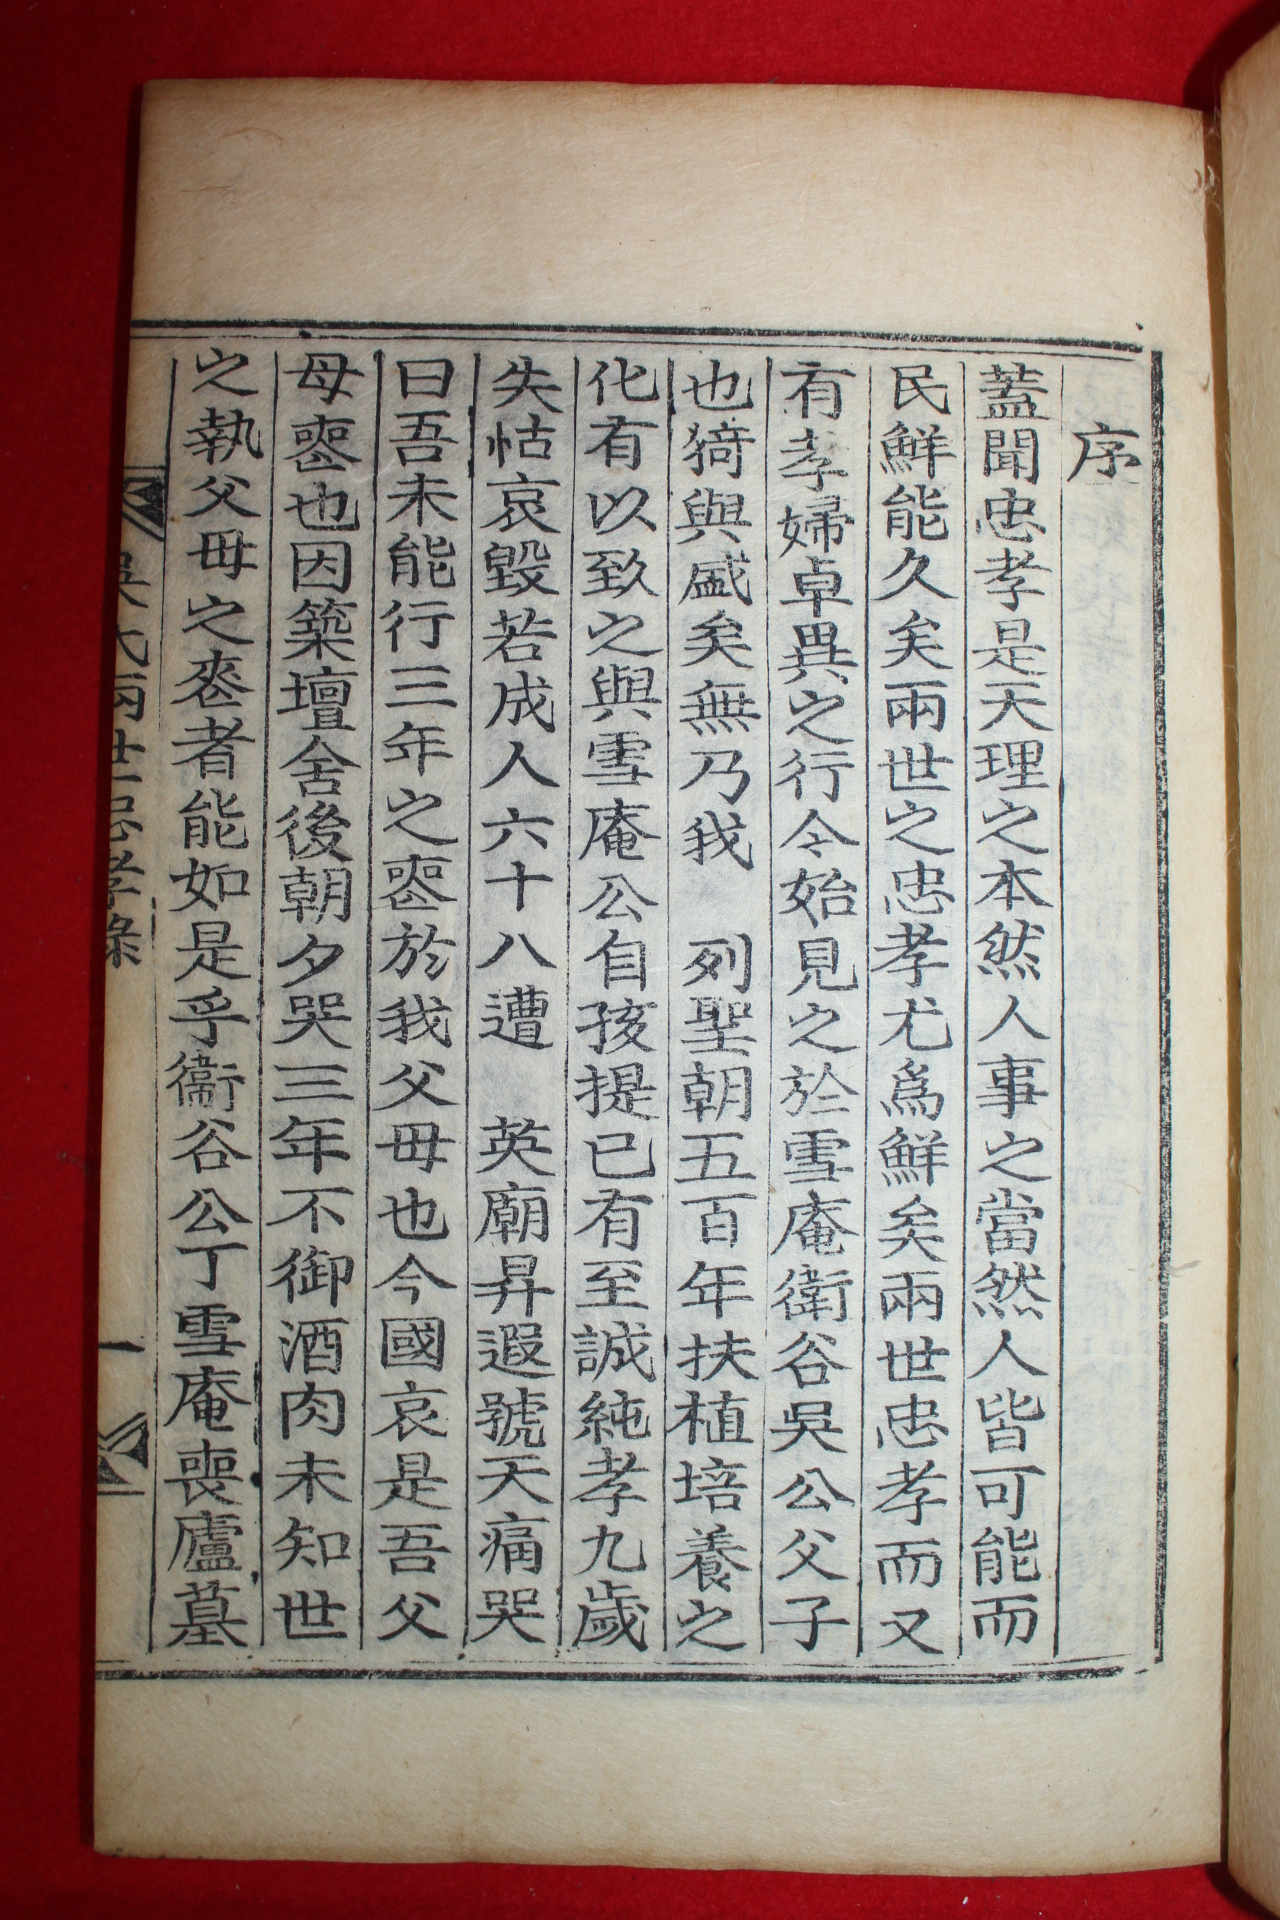 序
蓋聞忠孝是天理之本然人事之當然人皆可能而
民鮮能久矣兩世之忠孝尤爲鮮矣兩世忠孝而又
有孝婦卓異之行今始見之於雪庵衛谷吳公父子
也猗與盛矣無乃我 列聖朝五百年扶植培養之
化有以致之與雪庵公自孩提已有至誠純孝九歲
失怙哀毀若成人六十八遭 英廟昇遐號天痛哭
曰吾未能行三年之喪於我父母也今國哀是吾父
母喪也因築壇舍後朝夕哭三年不御酒肉未知世
之執父母之喪者能如是乎衛谷公丁雪庵喪廬墓
吳氏兩世忠孝錄 一